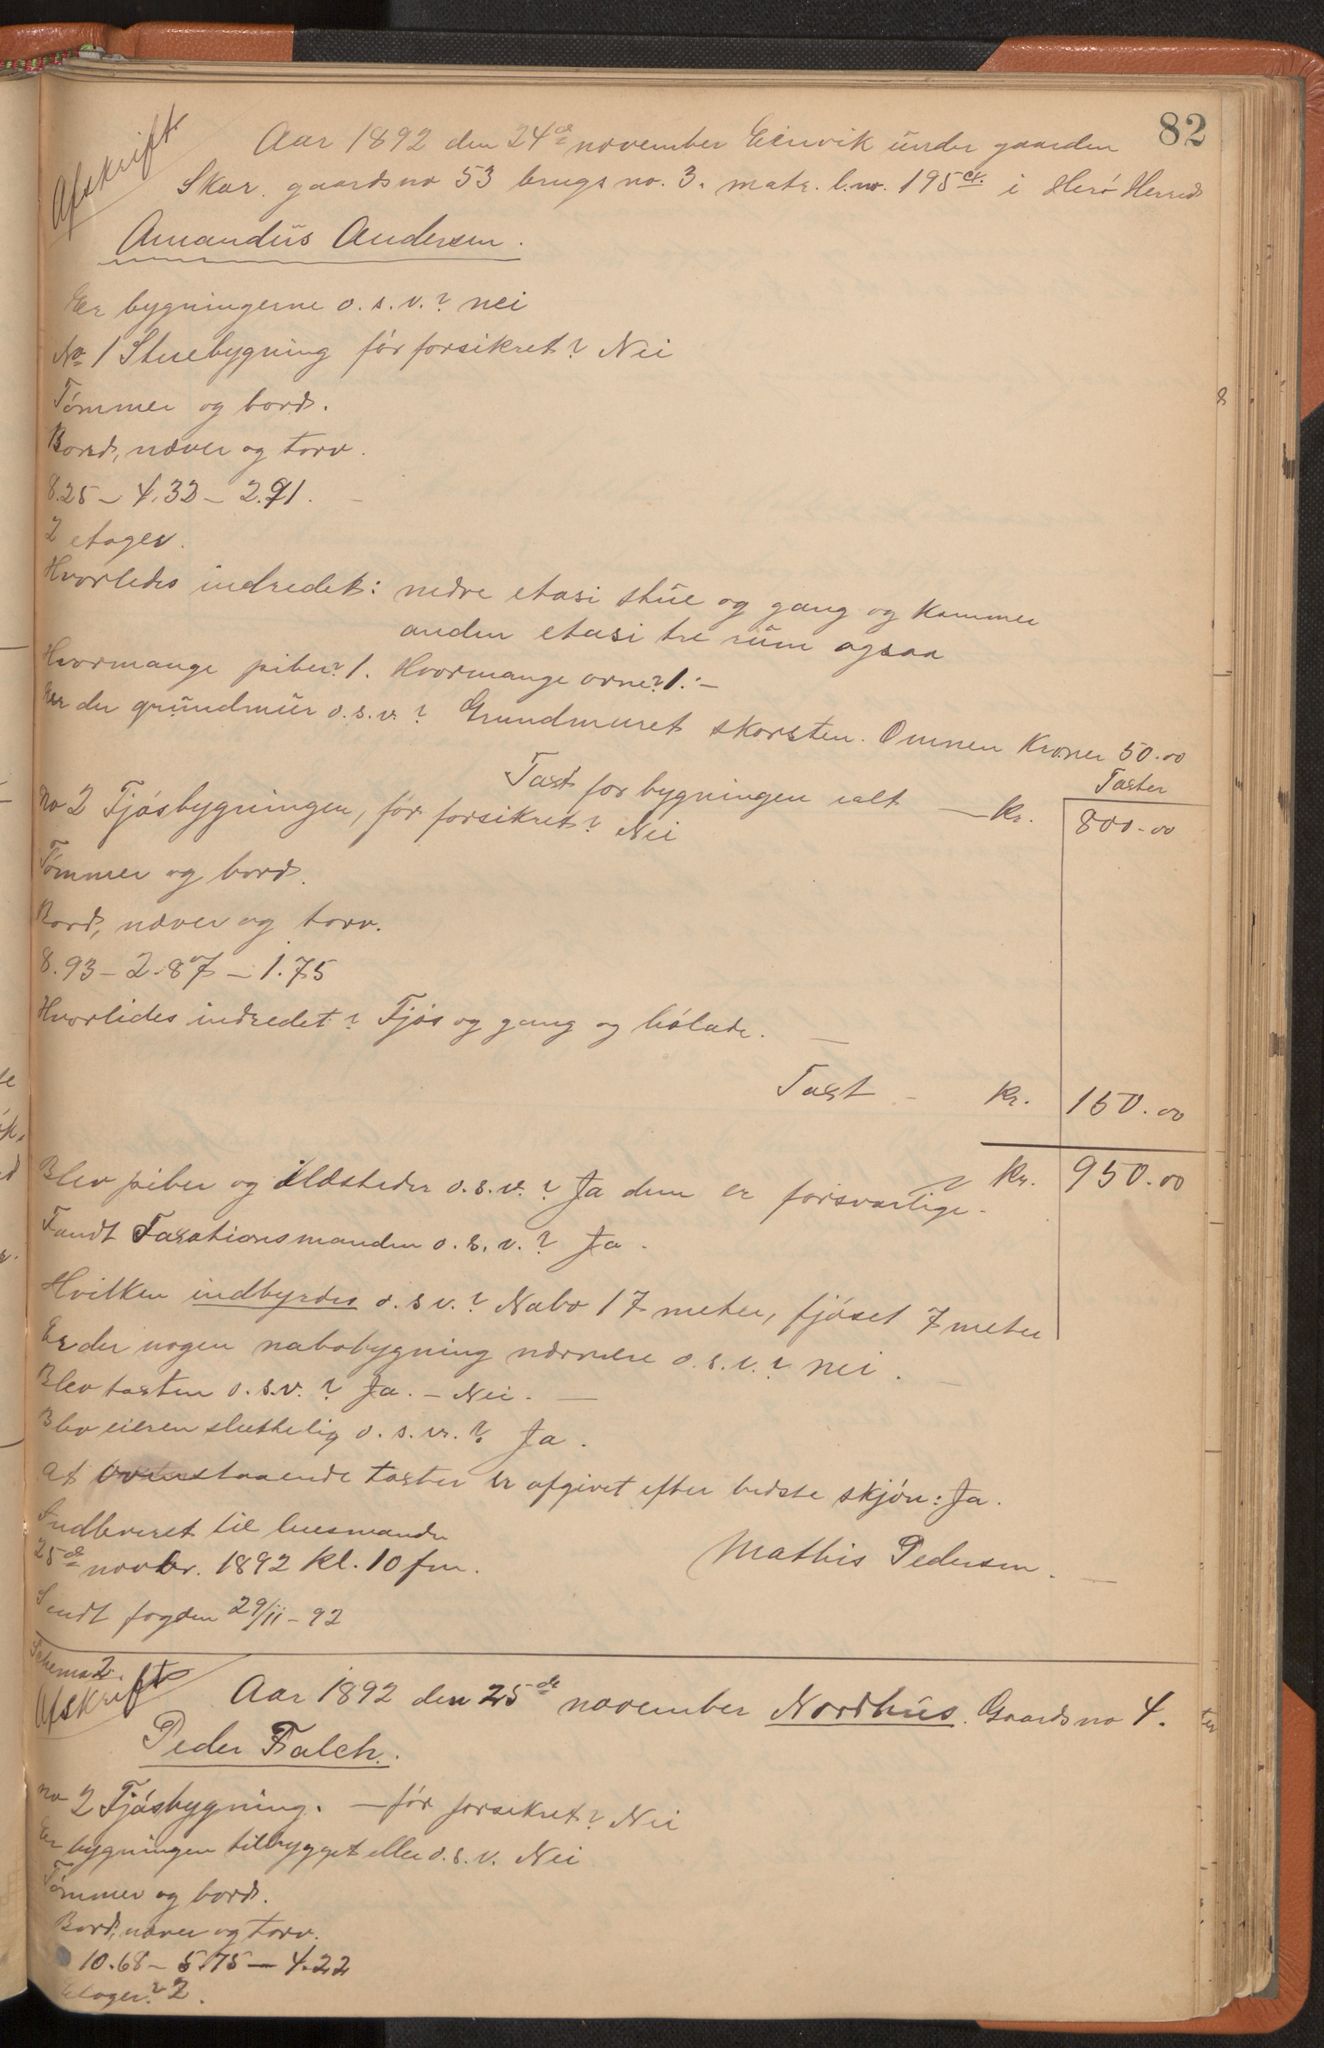 82
Afskrift
Aar 1892 den 24de november Einvik under gaarden
Skar. gaardsno 53 brugs no. 3. matr. l.no. 195 ck. i Herø Herred
Amandus Andersen.
Er bygningerne o. s. v.? nei
No 1 Stuebygning før forsikret? Nei
Tømmer og bord.
Bord, næver og torv.
8.25 – 4.32 – 2.91.
2 etager.
Hvorledes indredet: nedre etasi stue og gang og kammer
anden etasi tre rum ogsaa
Hvormange piber? 1. Hvormange ovne? 1. –
Er der grundmur o. s. v.? Grundmuret skorsten. Ovnen Kroner 50.00
Taxter
Taxt for bygningen ialt – kr. 800.00
no 2 Fjøsbygningen, før forsikret? Nei
Tømmer og bord.
Bord, næver og torv.
8.93 – 2.87 – 1.75
Hvorledes indredet? Fjøs og gang og hølade. –
Taxt – kr. 150.00
kr. 950.00
Blev piber og ildsteder o. s. v.? Ja dem er forsvarlige.
Fandt Taxationsmanden o. s. v.? Ja.
Hvilken indbyrdes o. s v.? Nabo 17 meter, fjøset 7 meter
Er der nogen nabobygning nærmere o. s. v.? nei. –
Blev taxten o. s. v.? Ja. – Nei. –
Blev eieren sluttelig o. s. v.? Ja.
At ovenstaaende taxter er afgivet efter bedste skjøn: Ja.
Indleveret til lensmanden
25de novbr. 1892 kl. 10 fm.
Mathis Pedersen. –
Sendt fogden 29/11 – 92
Schema 2.
Afskrift
Aar 1892 den 25de november Nordhus. Gaards no 4.
Peder Falch.
no 2 Fjøsbygning. – før forsikret? Nei
Er bygningen tilbygget eller o. s. v. Nei
Tømmer og bord.
Bord, næver og torv.
10.68 – 5.75 – 4.22
Etager? 2.